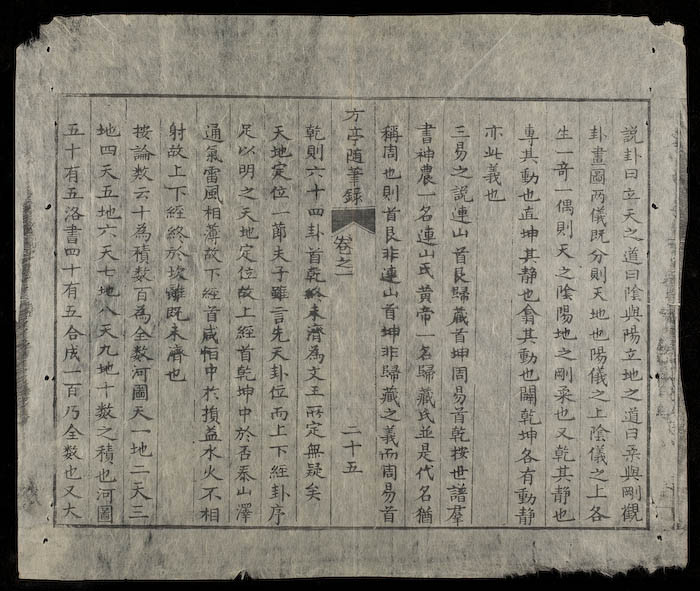 說卦曰立天之道曰陰與陽立地之道曰柔與剛觀
卦畫圖两儀既分則天地也陽儀之上陰儀之上各
生一奇一偶則天之陰陽地之剛柔也又乾其靜也
專其動也直坤其靜也翕其動也闢乾坤各有動靜
亦此義也
三易之說連山首艮歸藏首坤周易首乾按世譜羣
書神農一名連山氏黄帝一名歸藏氏並是代名猶
稱周也則首艮非連山首坤非歸藏之義而周易首
方亭隨筆錄 卷之一 二十五
乾則六十四卦首乾終未濟為文王所定無疑矣
天地定位一節夫子雖言先天卦位而上下經卦序
足以明之天地定位故上經首乾坤中於否泰山澤
通氣雷風相薄故下經首咸恒中於損益水火不相
射故上下經終於坎離既未濟也
按論数云十為積数百為全数河圖天一地二天三
地四天五地六天七地八天九地十数之積也河圖
五十有五洛書四十有五合成一百乃全数也又大